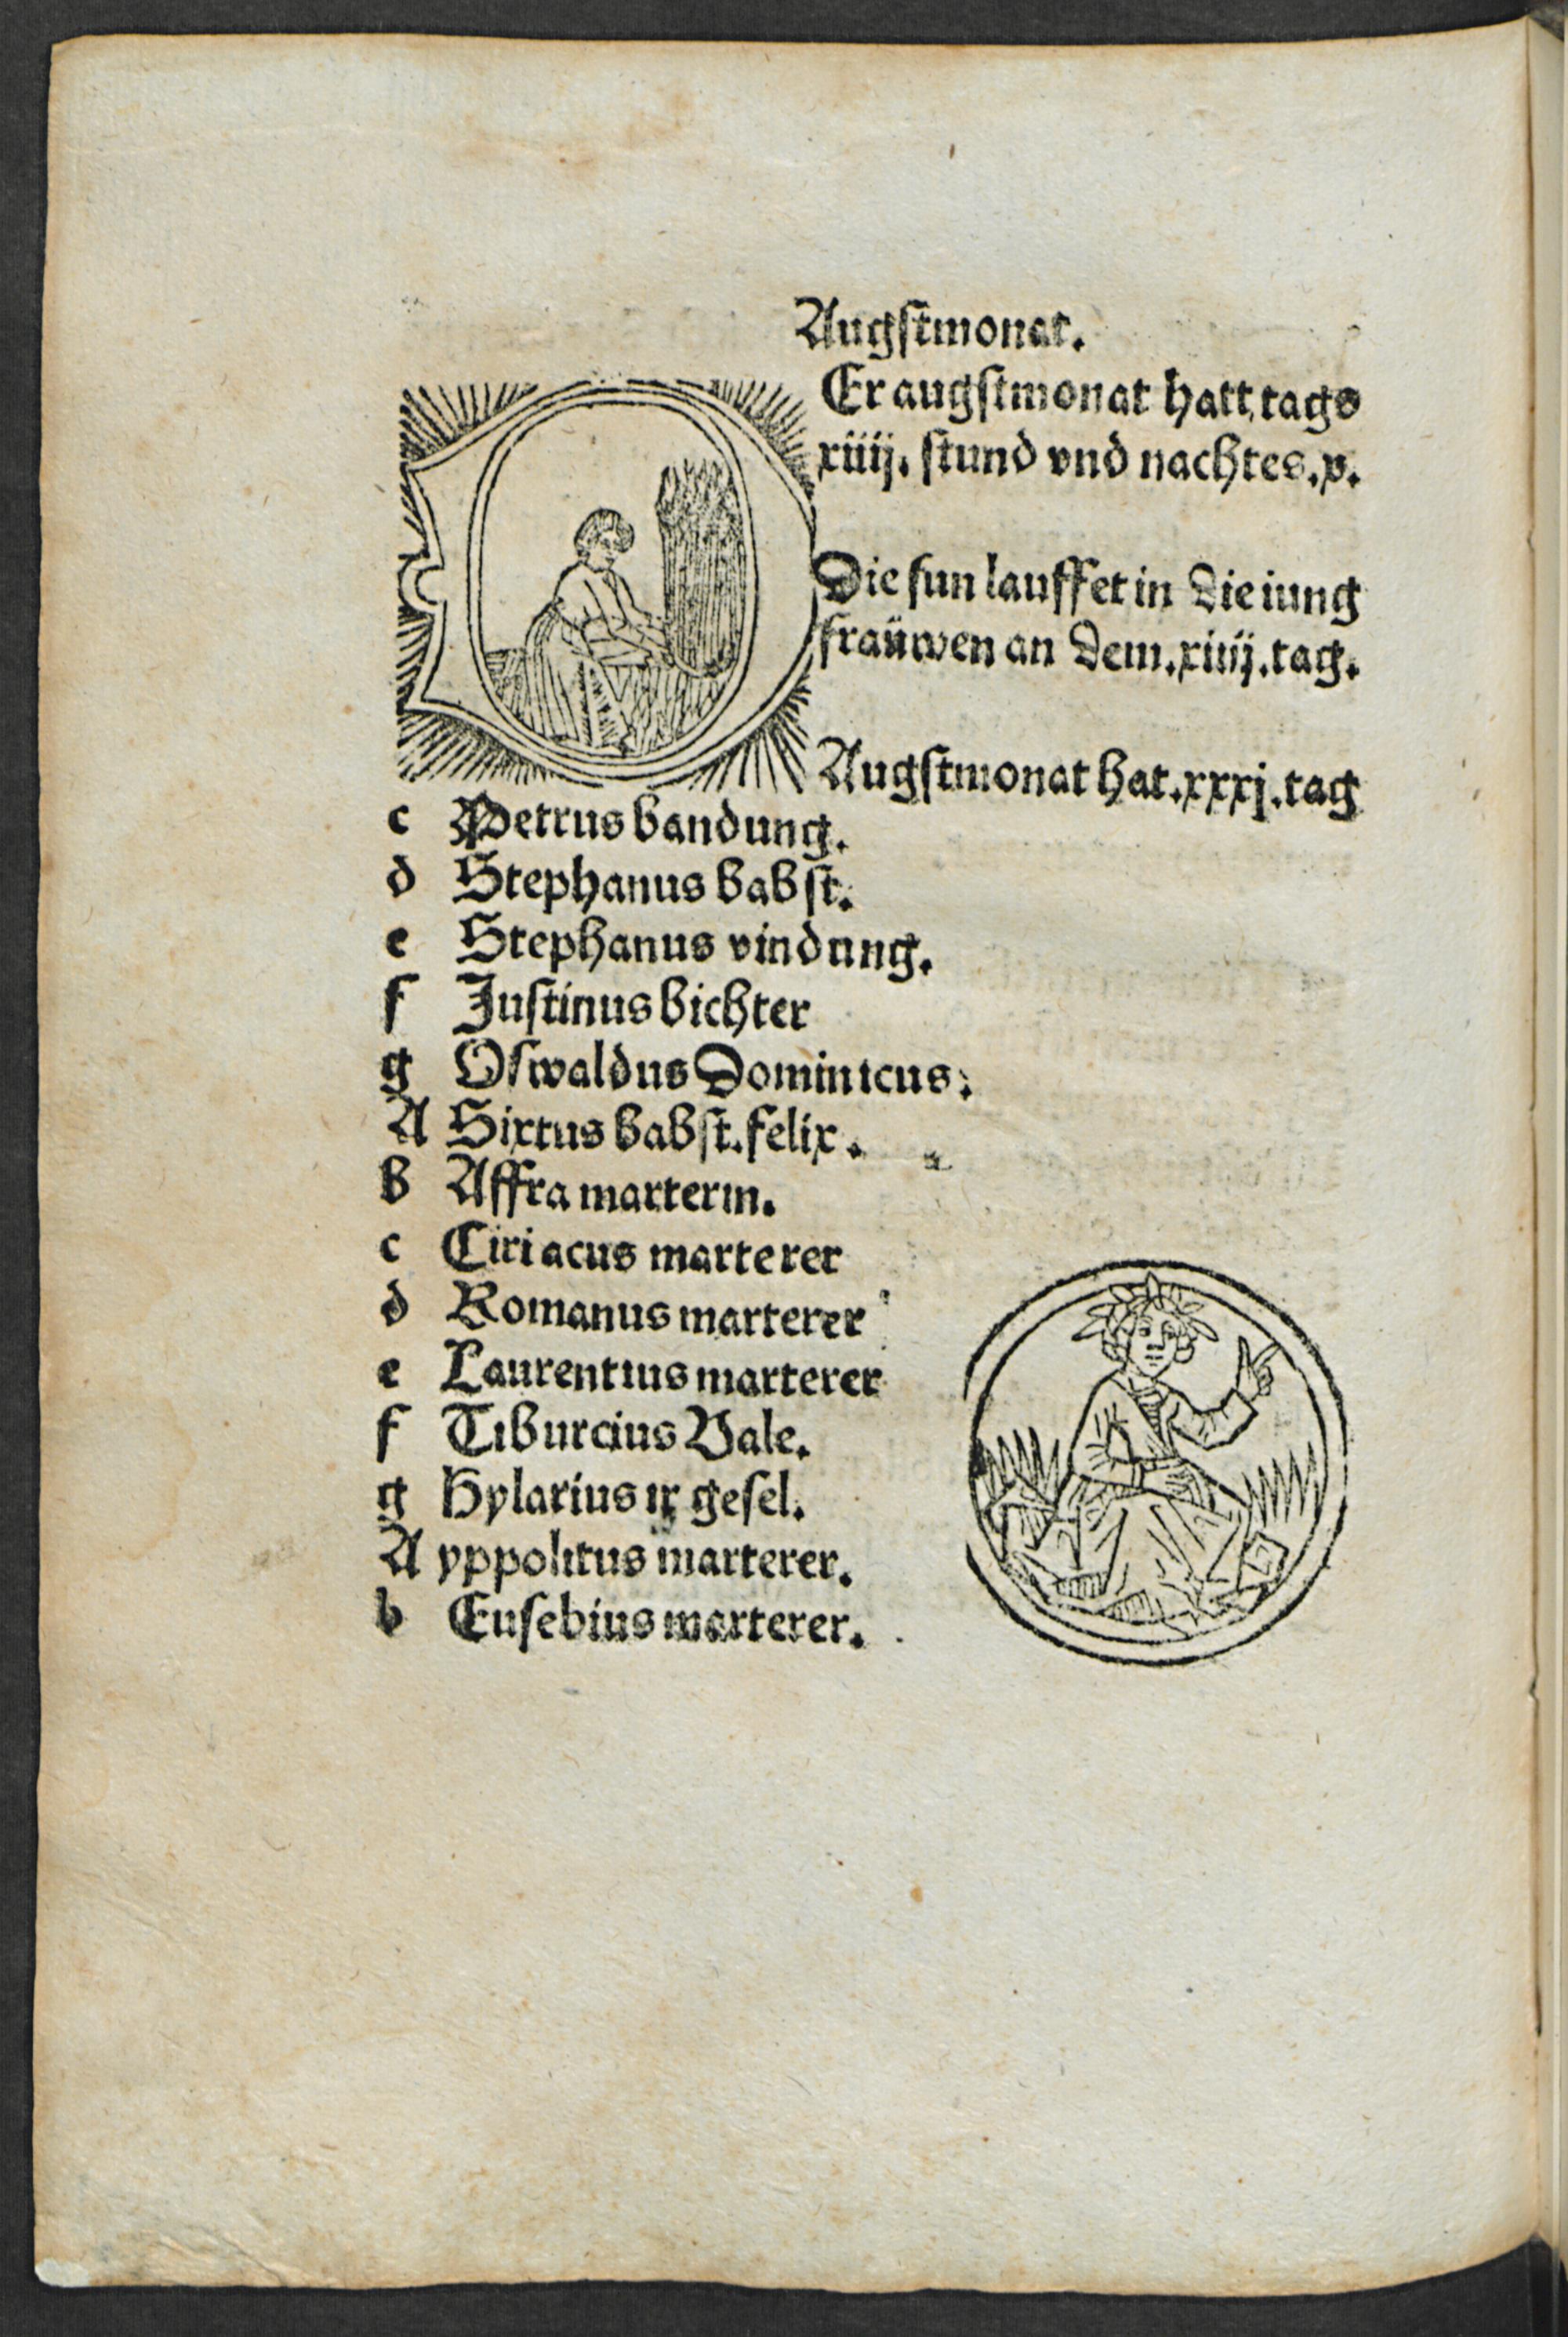 Augstmonat.
Er augstmonat hatt tags
xiiij. stund vnd nachtes .x.
Die sun lauffet in die iung
fraüwen an dem .xiiij. tag.
Augstmonat hat .xxxj. tag
c Petrus bandung.
d Stephanus babst.
e Stephanus vindung.
f Justinus bichter
g Oswaldus Dominicus.
A Sixtus babst. felix.
b Affra marterin.
c Ciriacus marterer
d Romanus marterer
e Laurentius marterer
f Tiburcius Vale.
g Hylarius ir gesel.
A yppolitus marterer.
b Eusebius marterer.